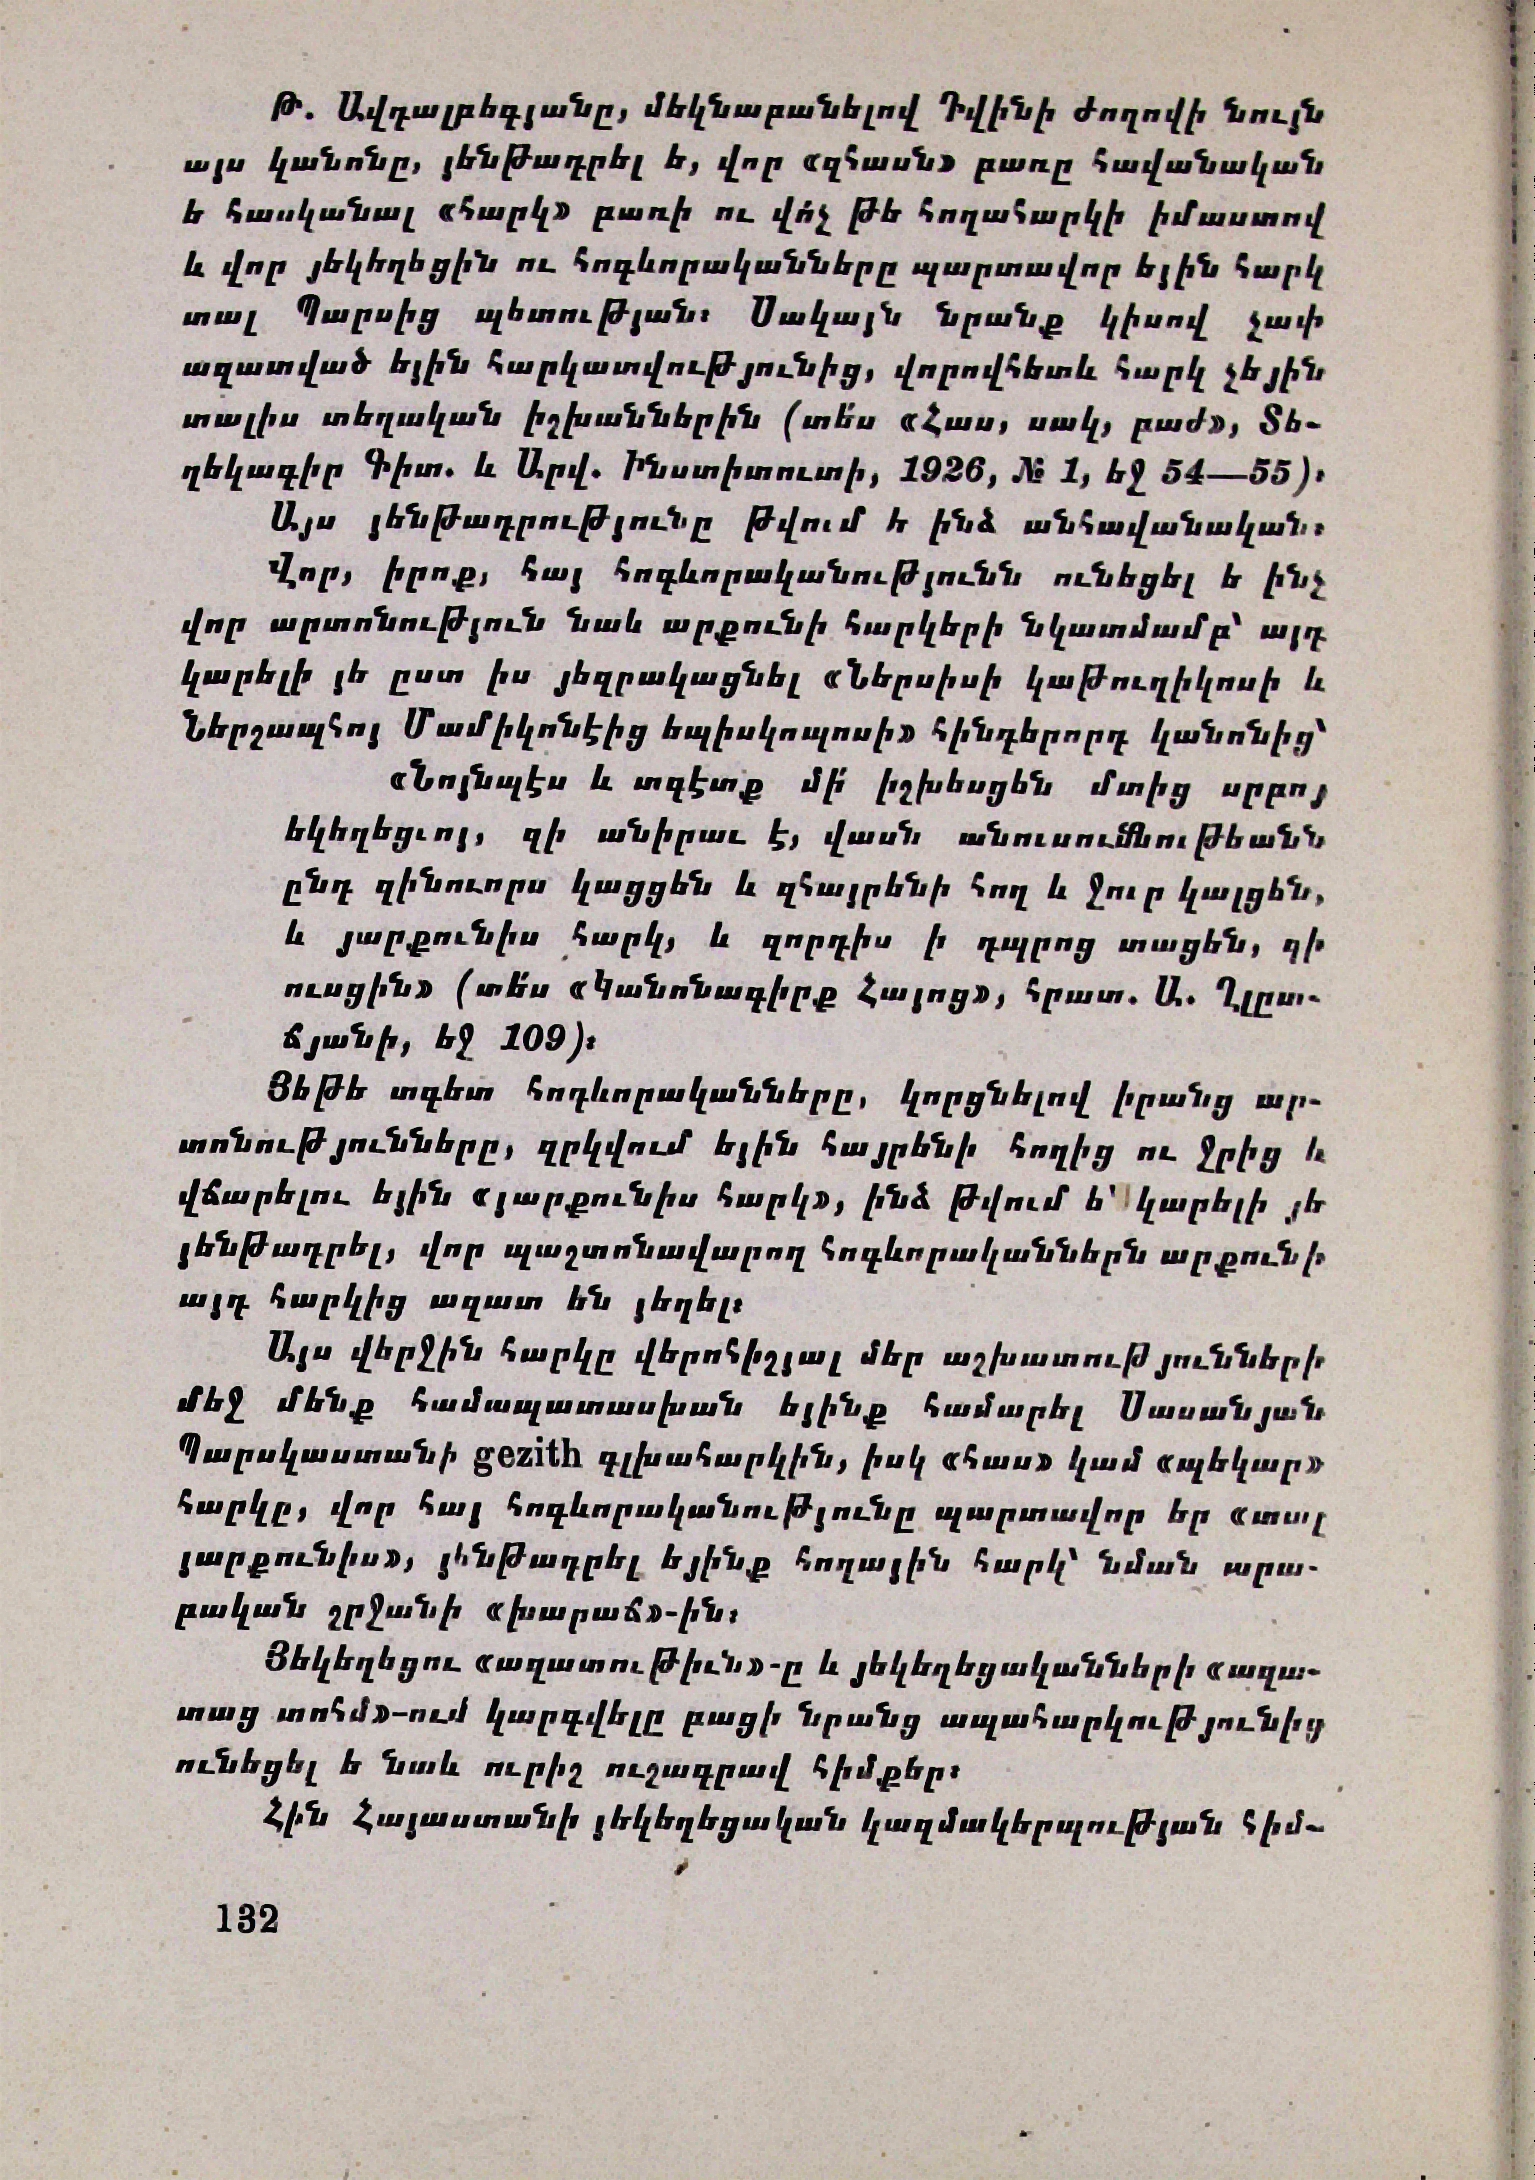 Թ. Ավդալբեգյանը, մեկնաբանելով Դվինի ժողովի նույն
այս կանոնը, յենթադրել ե, վոր «զհասն» բառը հավանական
ե հասկանալ «հարկ» բառի ու վո՛չ թե հողահարկի իմաստով
և վոր յեկեղեցին ու հոգևորականները պարտավոր եյին հարկ
տալ Պարսից պետության։ Սակայն նրանք կիսով չափ
ազատված եյին հարկատվությունից, վորովհետև հարկ չեյին
տալիս տեղական իշխաններին (տե՛ս «Հաս, սակ, բաժ», Տե-
ղեկագիր Գիտ. և Արվ. Ինստիտուտի, 1926, № 1, եջ 54—55)։
Այս յենթադրությունը թվում ե ինձ անհավանական։
Վոր, իրոք, հայ հոգևորականությունն ունեցել ե ինչ
վոր արտոնություն նաև արքունի հարկերի նկատմամբ՝ այդ
կարելի յե ըստ իս յեզրակացնել «Ներսիսի կաթուղիկոսի և
Ներշապհոյ Մամիկոնէից եպիսկոպոսի» հինգերորդ կանոնից՝
«Նոյնպէս և տգէտք մի՛ իշխեսցեն մտից սրբոյ
եկեղեցւոյ, զի անիրաւ է, վասն անուսումնութեանն
ընդ զինուորս կացցեն և զհայրենի հող և ջուր կալցեն,
և յարքունիս հարկ, և զորդիս ի դպրոց տացեն, զի
ուսցին» (տե՛ս «Կանոնագիրք Հայոց», հրատ. Ա. Ղլըտ-
ճյանի, եջ 109)։
Յեթե տգետ հոգևորականները, կորցնելով իրանց ար-
տոնությունները, զրկվում եյին հայրենի հողից ու ջրից և
վճարելու եյին «յարքունիս հարկ», ինձ թվում ե՝ կարելի յե
յենթադրել, վոր պաշտոնավարող հոգևորականներն արքունի
այդ հարկից ազատ են յեղել։
Այս վերջին հարկը վերոհիշյալ մեր աշխատությունների
մեջ մենք համապատասխան եյինք համարել Սասանյան
Պարսկաստանի gezith գլխահարկին, իսկ «հաս» կամ «պեկար»
հարկը, վոր հայ հոգևորականությունը պարտավոր եր «տալ
յարքունիս», յենթադրել եյինք հողային հարկ՝ նման արա-
բական շրջանի «խարաճ»-ին։
Յեկեղեցու «ազատութիւն»-ը և յեկեղեցականների «ազա-
տաց տոհմ»-ում կարգվելը բացի նրանց ապահարկությունից
ունեցել ե նաև ուրիշ ուշագրավ հիմքեր։
Հին Հայաստանի յեկեղեցական կազմակերպության հիմ-
132